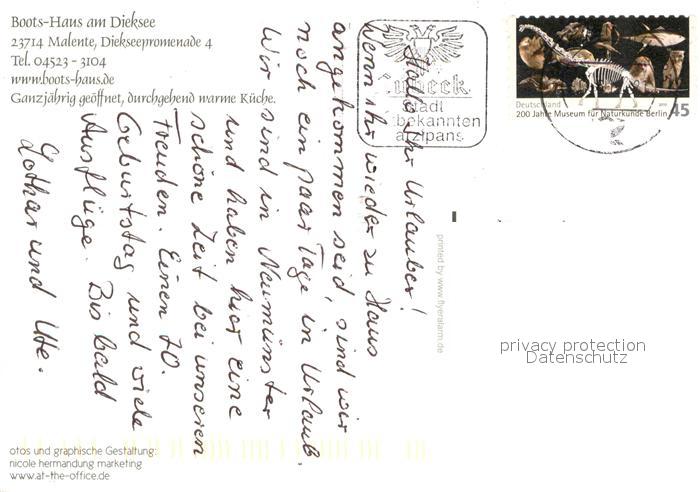 Boots-Haus am Dieksee
23714 Malente, Diekseepromenade 4
Tel. 04523 - 3104
www.boots-haus.de
Ganzjährig geöffnet, durchgehend warme Küche.
Hallo Ihr Urlauber!
Wenn ihr wieder zu Haus
angekommen seid, sind wir
noch ein paar Tage in Urlaub.
Wir sind in Neumünster
und haben hier eine
schöne Zeit bei unseren
Freunden. Einen 70.
Geburtstag und viele
Ausflüge. Bis bald
Lothar und Ute.
Lübeck
Stadt
bekannten
arzipans
Deutschland
45
200 Jahre Museum für Naturkunde Berlin
printed by www.flyeralarm.de
privacy protection
Datenschutz
otos und graphische Gestaltung:
nicole hermandung marketing
www.at-the-office.de